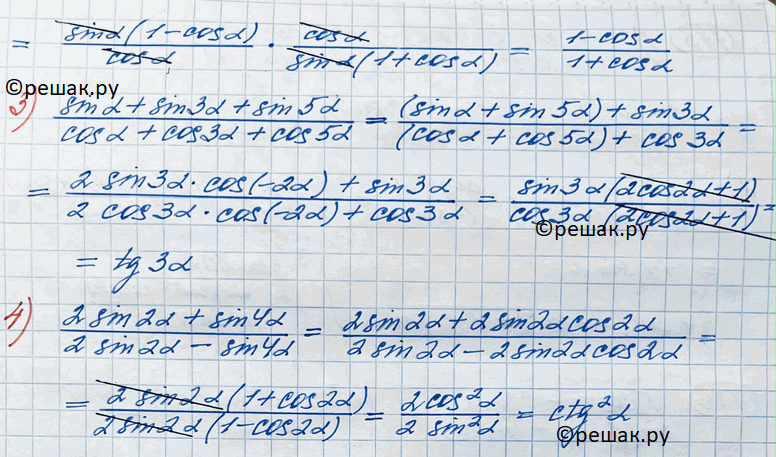 = sinα(1-cosα)/cosα · cosα/sinα(1+cosα) = 1-cosα/1+cosα
©решак.ру
3) sinα+sin3α+sin5α/cosα+cos3α+cos5α = (sinα+sin5α)+sin3α/(cosα+cos5α)+cos3α =
= 2sin3α·cos(-2α)+sin3α/2cos3α·cos(-2α)+cos3α = sin3α(2cos2α+1)/cos3α(2cos2α+1) =
©решак.ру
= tg3α
4) 2sin2α+sin4α/2sin2α-sin4α = 2sin2α+2sin2αcos2α/2sin2α-2sin2αcos2α =
= 2sin2α(1+cos2α)/2sin2α(1-cos2α) = 2cos²α/2sin²α = ctg²α
©решак.ру